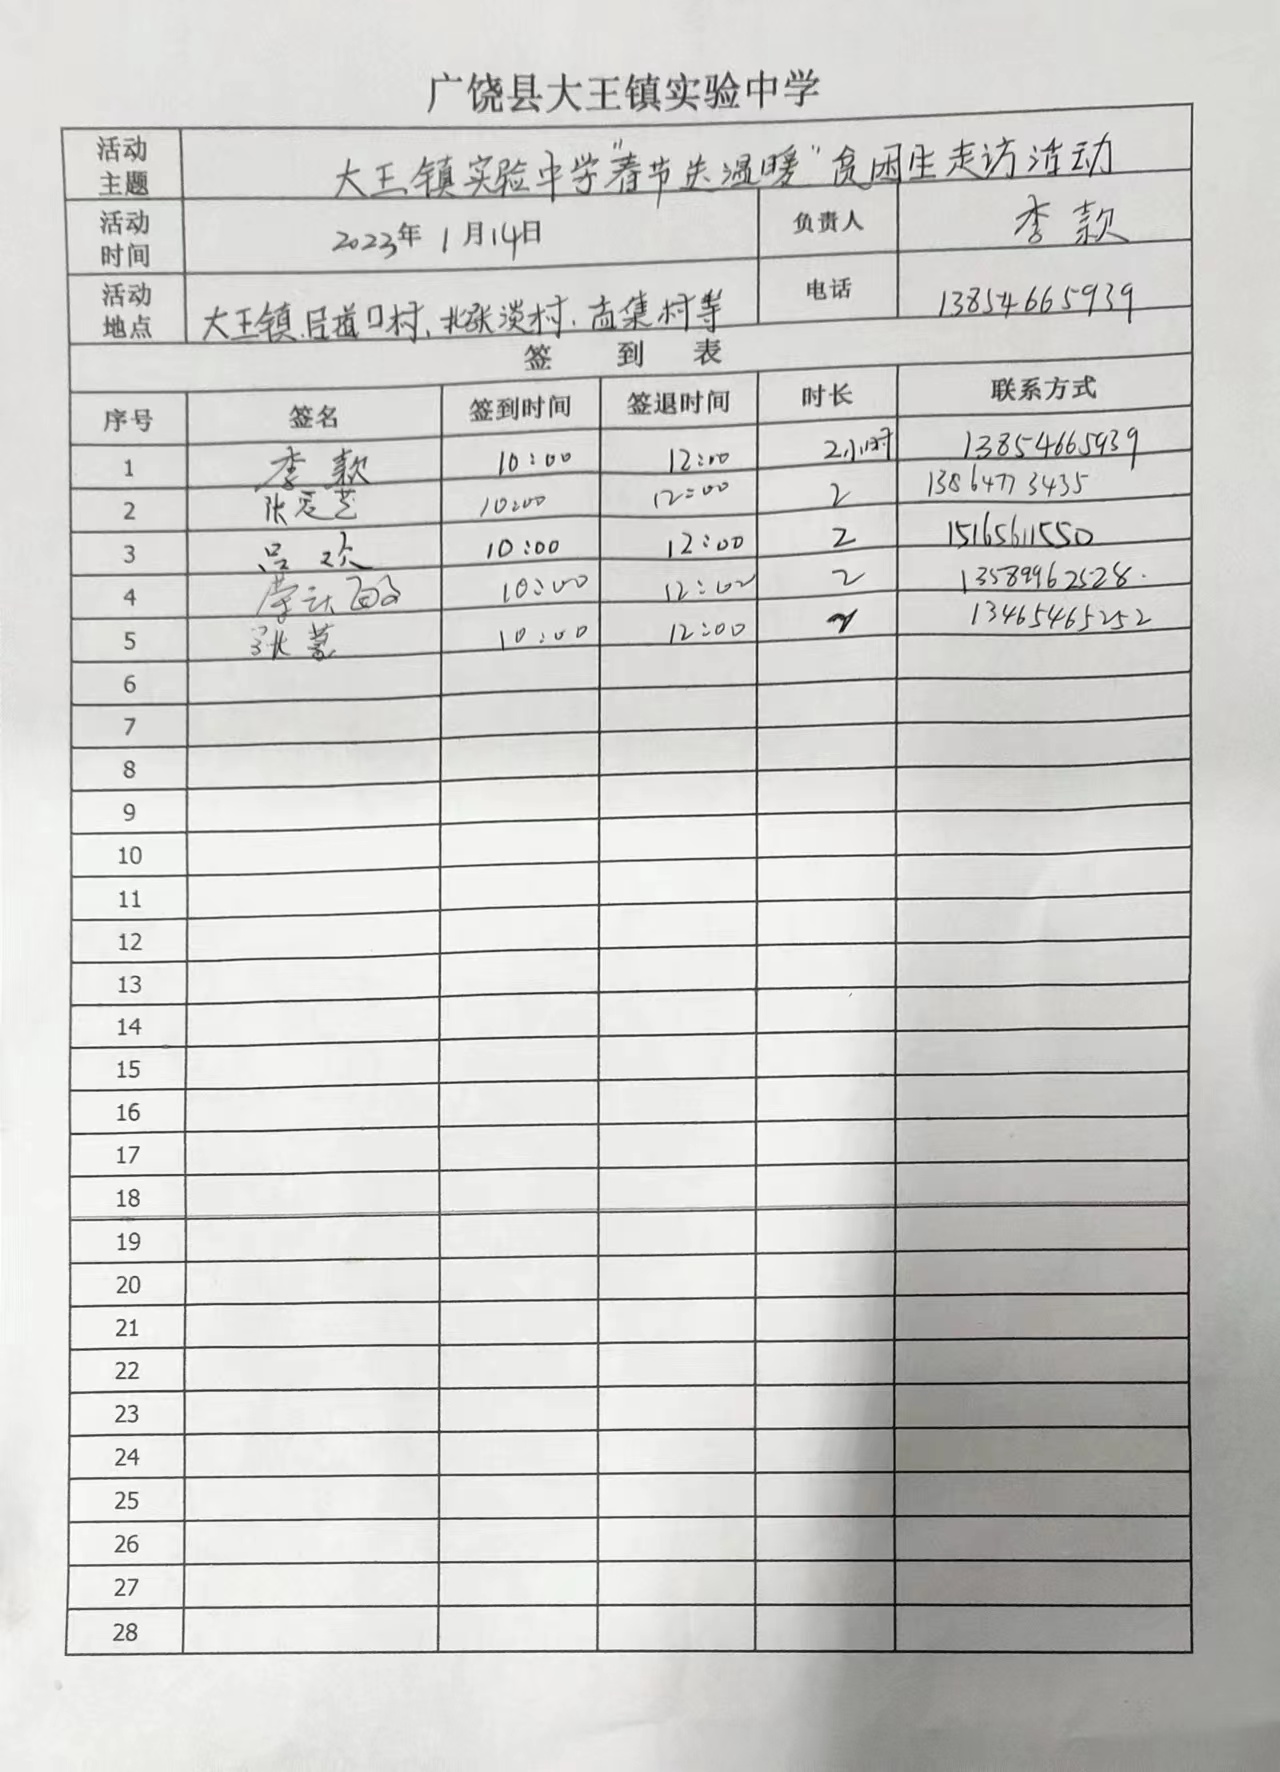 广饶县大王镇实验中学
活动主题 大王镇实验中学"春节失温暖"贫困生走访活动
活动时间 2023年1月14日 负责人 李款
活动地点 大王镇吕道口村、北张淡村、孟集村等 电话 13854665939
签到表
序号 签名 签到时间 签退时间 时长 联系方式
1 李款 10:00 12:00 2小时 13854665939
2 张爱芝 10:00 12:00 2 13864773435
3 吕欢 10:00 12:00 2 15165611550
4 10:00 12:00 2 13589962528.
5 张蒙 10:00 12:00 2 13465465252
6
7
8
9
10
11
12
13
14
15
16
17
18
19
20
21
22
23
24
25
26
27
28